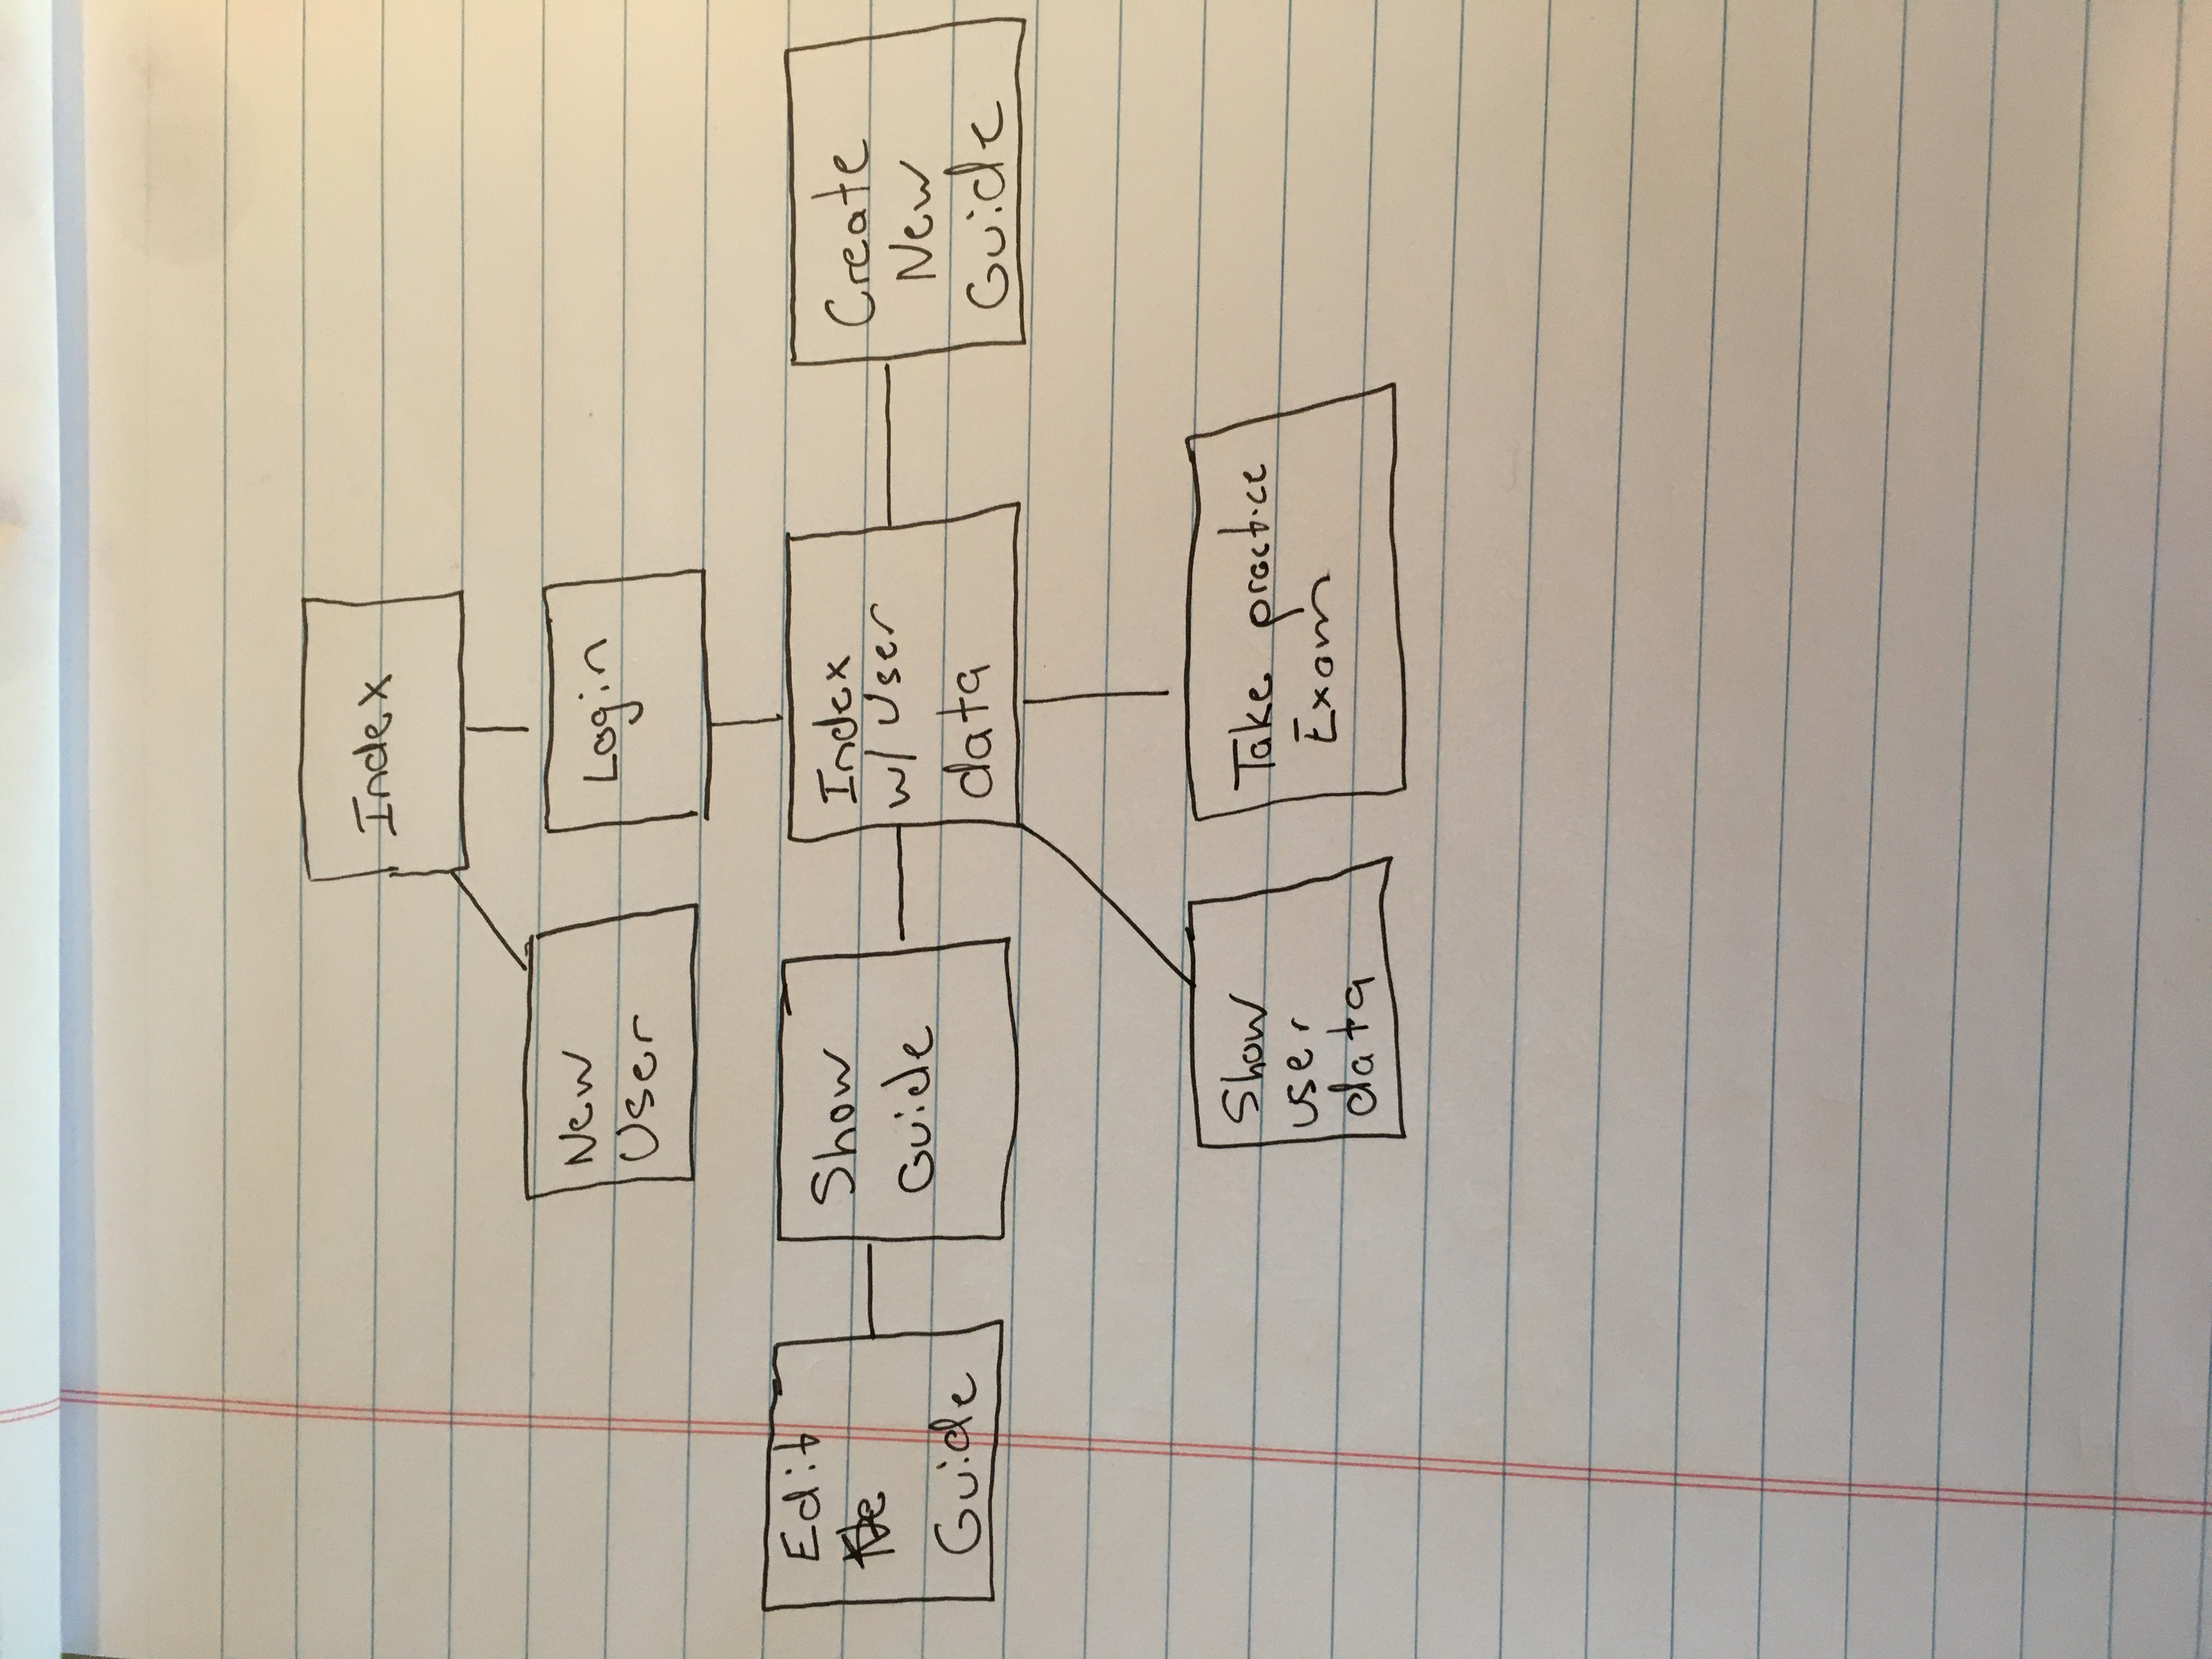 Index
New
User
Login
Edit
Guide
Show
Guide
Index
w/ User
data
Create
New
Guide
Show
user
data
Take practice
Exam